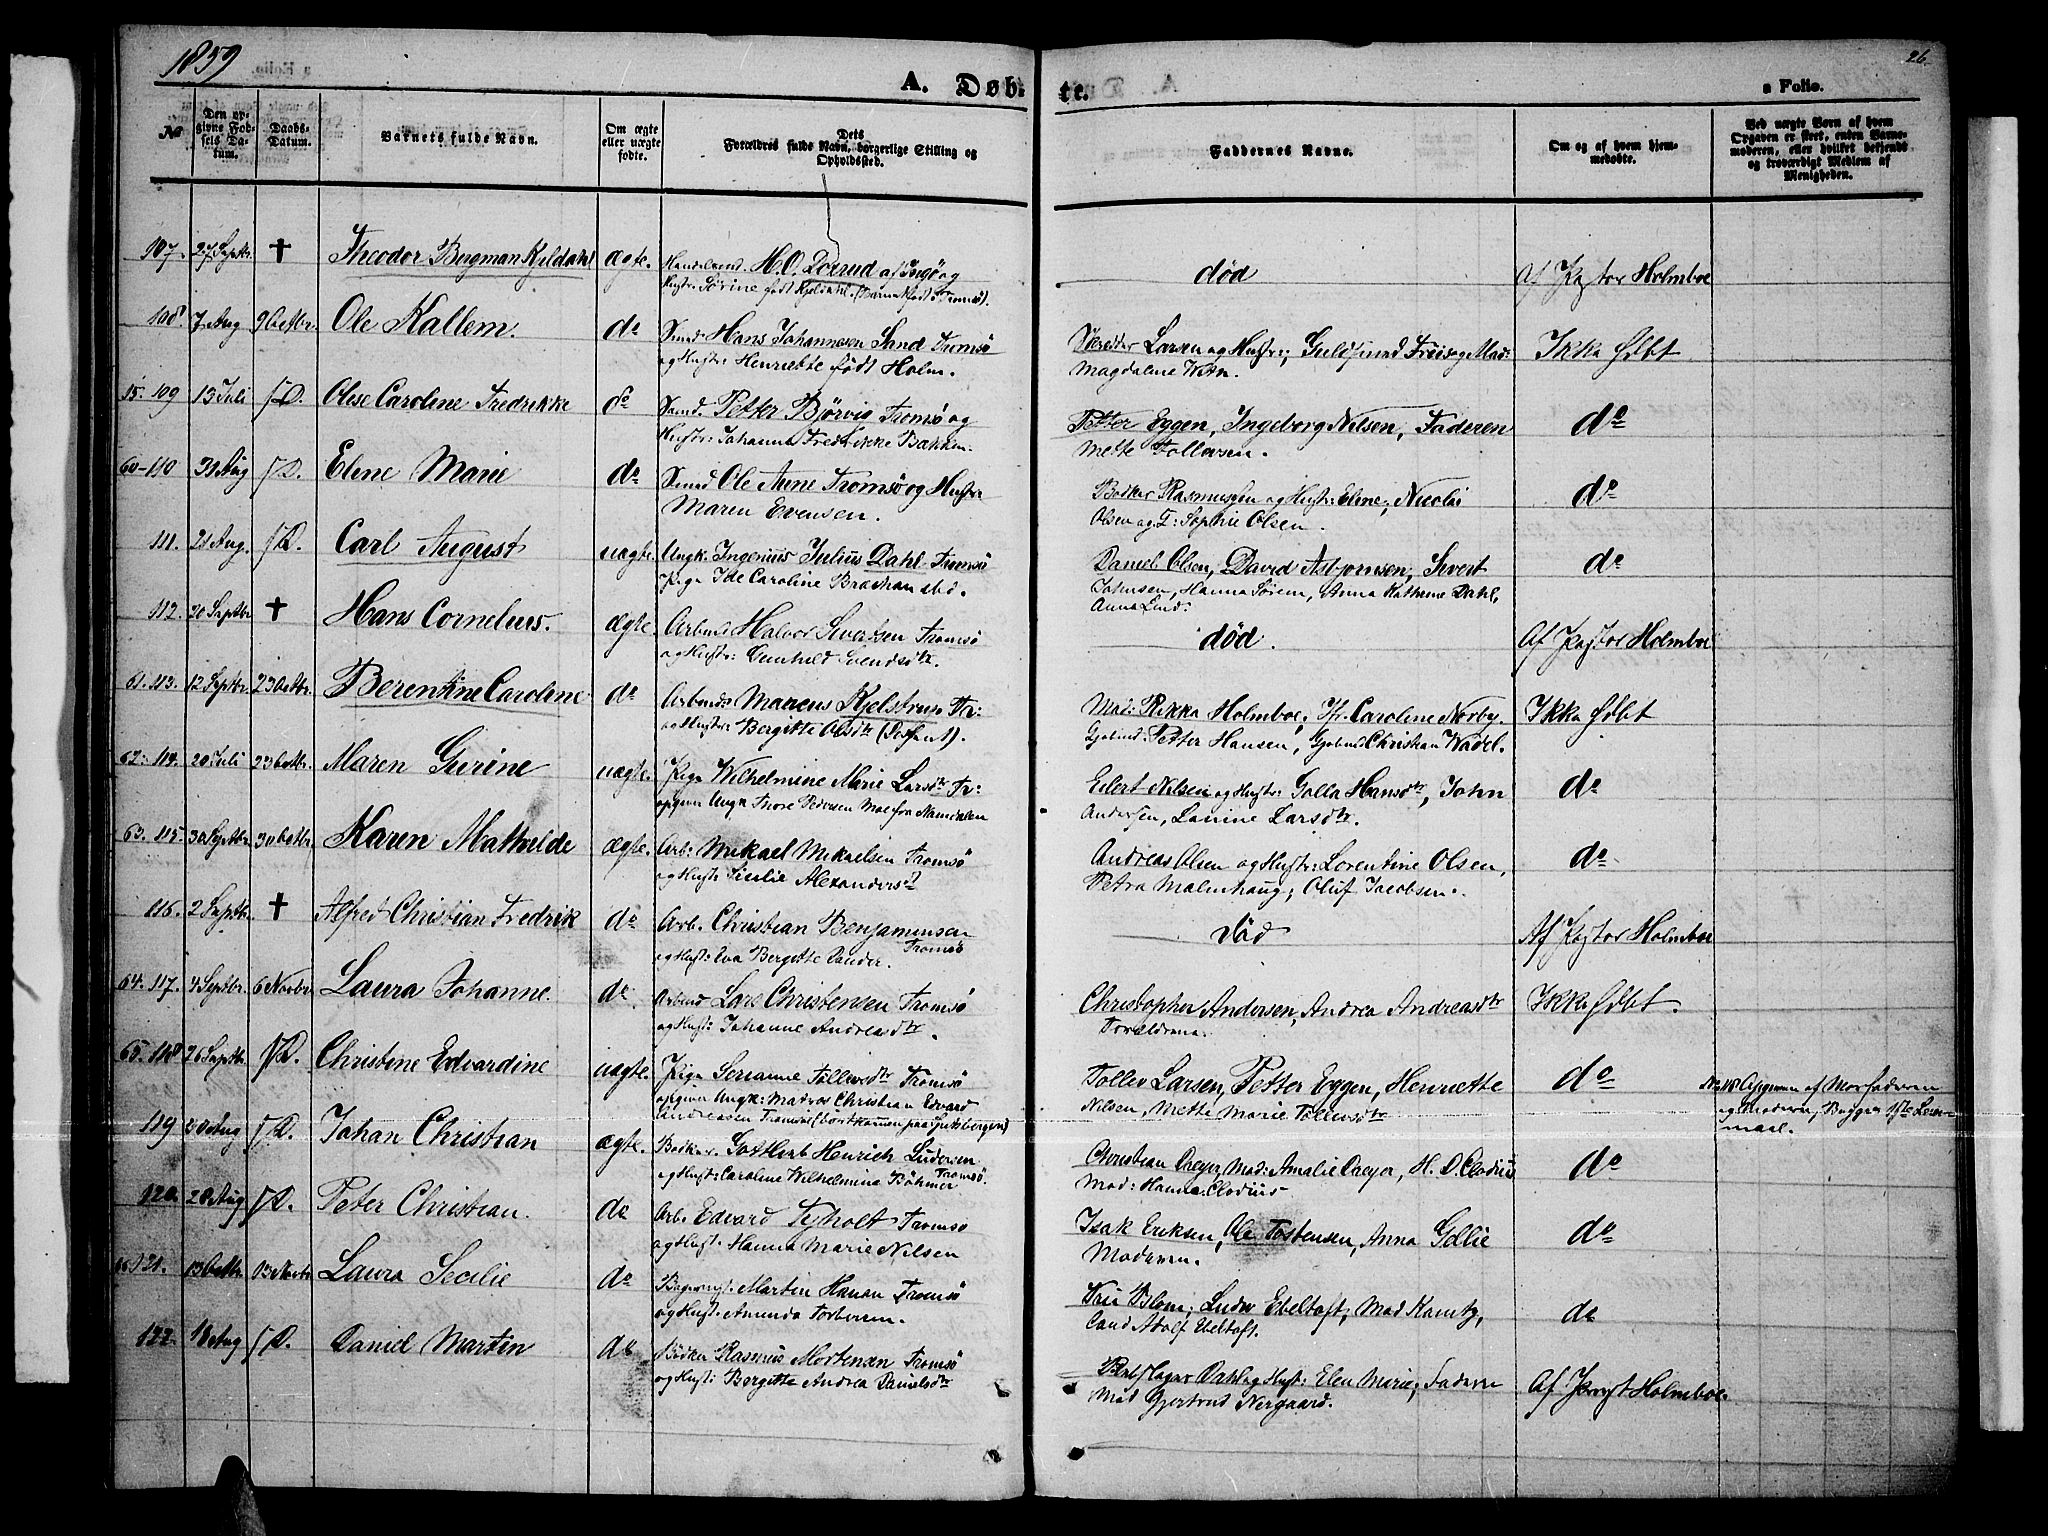 1859
26.
A. Døb-
te.
a Folio.
No
Den opgivne Fødsels Datum.
Daabs-Datum.
Barnets fulde Navn.
Om ægte eller uægte fødte.
Dets Forældres fulde Navn, borgerlige Stilling og Opholdssted.
Faddernes Navne.
Om og af hvem hjemmedøbte.
Ved uægte Børn af hvem Opgaven er skeet, enten Barnemoderen, eller hvilket bekjendt og troværdigt Medlem af Menigheden.
107. 27 Septbr. † Theodor Bugman Kjeldahl ægte. H.O. af og
Hustr: Sørine født Kjeldahl. Tromsø).
død
Af Holmboe
108. 7 Aug 9 Octbr. Ole Kallem. do Hans Johannesen Sand Tromsø
og Hustr: Henriette født Holm.
Larsen og Hustr:, Mad:
Magdalene
Ikke Hdbt
15. 109 13 Juli Olese Caroline Fredrikke do Petter Bjørvig Tromsø og
Hustr: Johanna Fredrikke Bakken.
Petter Eggen, Ingeborg Nilsen, Faderen
Mette Tollevsen.
do
60-110 31 Aug Elene Marie do Ole Arne Tromsø og Hustr:
Maren Evensen.
Bødker Rasmussen og Hustr: Elene, Nicolai
Olsen og Sophie Olsen.
do
111. 21 Aug. Carl August uægte. Ungk. Ingenius Julius Dahl Tromsø
Pige Ide Caroline
Daniel Olsen, David Asbjørnsen, Sivert
Johnsen, Hanna Sørem, Anna Kathrine Dahl,
Anna Lind.
do
112. 20 Septbr † Hans Cornelius. ægte. Arbmd Halvor Sivertsen Tromsø
og Hustr: Gunhild Svendsdtr.
død.
Af Holmboe
61. 113. 12 Septbr. 23 Octbr. Berentine Caroline do Arbmd: Marcus Kjelstrup Tr:
og Hustr: Bergitte Olsdtr
Mad: Rikka Holmboe, Jfr. Caroline Norby.
Petter Hansen, Christian Wadel.
Ikke Hdbt
62. 114. 20 Juli 23 Octbr. Maren Gurine uægte. Pige Wilhelmine Marie Larsdtr Tr:
opgiven Ungk Thore Pedersen fra Namdalen
Eilert Nilsen og Hustr: Golla Hansdtr, John
Andersen, Lanine Larsdtr.
do
63. 115. 30 Septbr. 30 Octbr. Karen Mathilde ægte. Arb: Mikael Mikaelsen Tromsø
og Hustr: Cecilie Alexandersdtr
Andreas Olsen og Hustr: Lorentine Olsen,
Petra Malmhaug, Oluf Jacobsen.
do
116. 2 Septbr. † Alfred Christian Fredrik do Arb. Christian Benjaminsen
Tromsø
og Hust: Eva Bergitte Cander.
død
Af Holmboe
64. 117. 4 Septbr. 6 Novbr. Laura Johanne. do Arbmd Lars Christensen Tromsø
og Hust: Johanne Andreasdtr.
Christopher Andersen, Andrea Andreasdtr
Forældrene.
Ikke Hdbt.
65. 118 26 Septbr. Christine Edvardine uægte. Pige Serianne Tollevsdtr Tromsø
opgiven Ungk: Madros Christian Edvard
Andreasen Tromsø (bortkommen paa Spitsbergen)
Tollev Larsen, Petter Eggen, Henriette
Nilsen, Mette Marie Tollevsdtr
do
No 118 Opgiven af Morfaderen
og Moderen, Begges 1ste Leier-
maal.
119 20 Aug Johan Christian ægte. Bødker. Gottlieb Henrich Ludersen
Tromsø.
og Hust: Caroline Wilhelmina Böhmer
Christian Dreyer, Mad: Amalie Dreyer, H. D. Clodius
Mad: Hanna Clodius
do
120. 28 Aug Peter Christian. do Arb. Edvard Tyholt Tromsø
og Hust: Hanna Marie Nilsen
Isak Eriksen, Ole Tostensen, Anna Gollie
Moderen.
do
66. 121. 13 Octbr. 13 Novbr Laura Secilie do Martin Hanan Tromsø
og Hust: Amunda Torbersen.
Blom, Ludv Ebeltoft, Mad
Cand Adolf Ebeltoft.
do
122. 18 Aug Daniel Martin do Bødker Rasmus Mortensen Tromsø
og Hust: Bergitte Andrea Danielsdtr
Dahl og Hust: Elen Marie, Faderen
Mad Gjertrud Nergaard.
Af Holmboe.